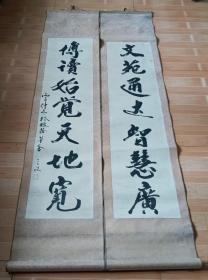 文苑通达智慧廣
博讀始覺天地寬